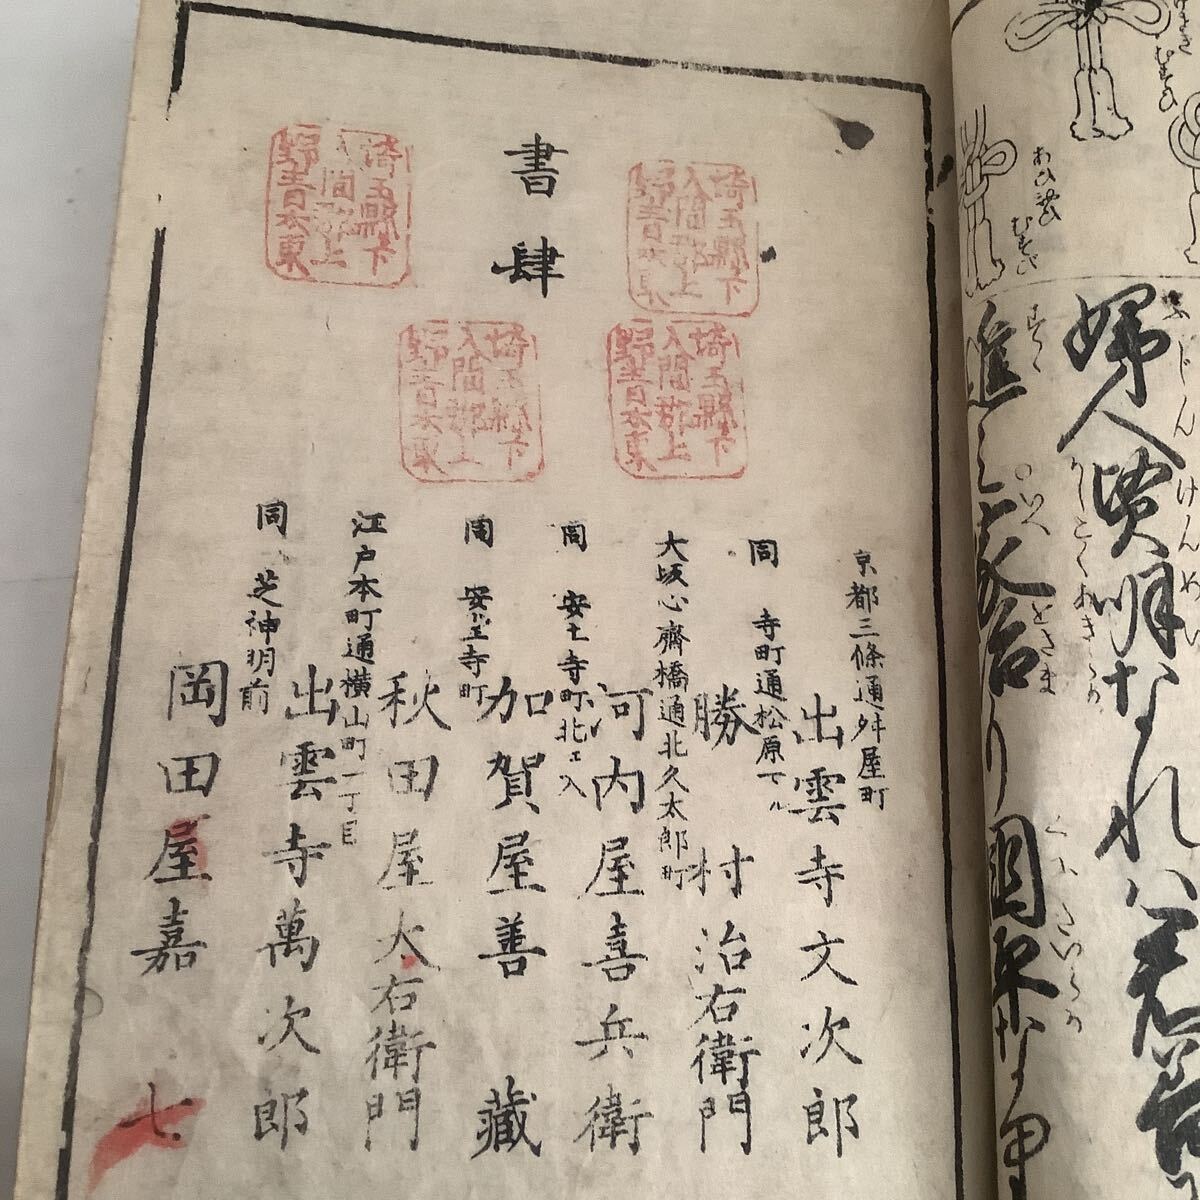 むすび
あひおひ
むすび
ふじんけんめい
婦人賢明なれば君
かしこくあきらか
すゝ
進で
をさま
治り国
書肆
京都三條通舛屋町
出雲寺文次郎
同 寺町通松原下ル
勝村治右衛門
大坂心齋橋通北久太郎町
河内屋喜兵衛
同 安土寺町北エ入
加賀屋善藏
同 安堂寺町
秋田屋太右衛門
江戸本町通横山町一丁目
出雲寺萬次郎
同 芝神明前
岡田屋嘉七
埼玉縣下
入間郡上
野青木東
埼玉縣下
入間郡上
野青木東
埼玉縣下
入間郡上
野青木東
埼玉縣下
入間郡上
野青木東